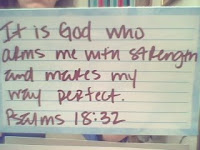 It is God who
arms me with strength
and makes my
way perfect.
Psalms 18:32